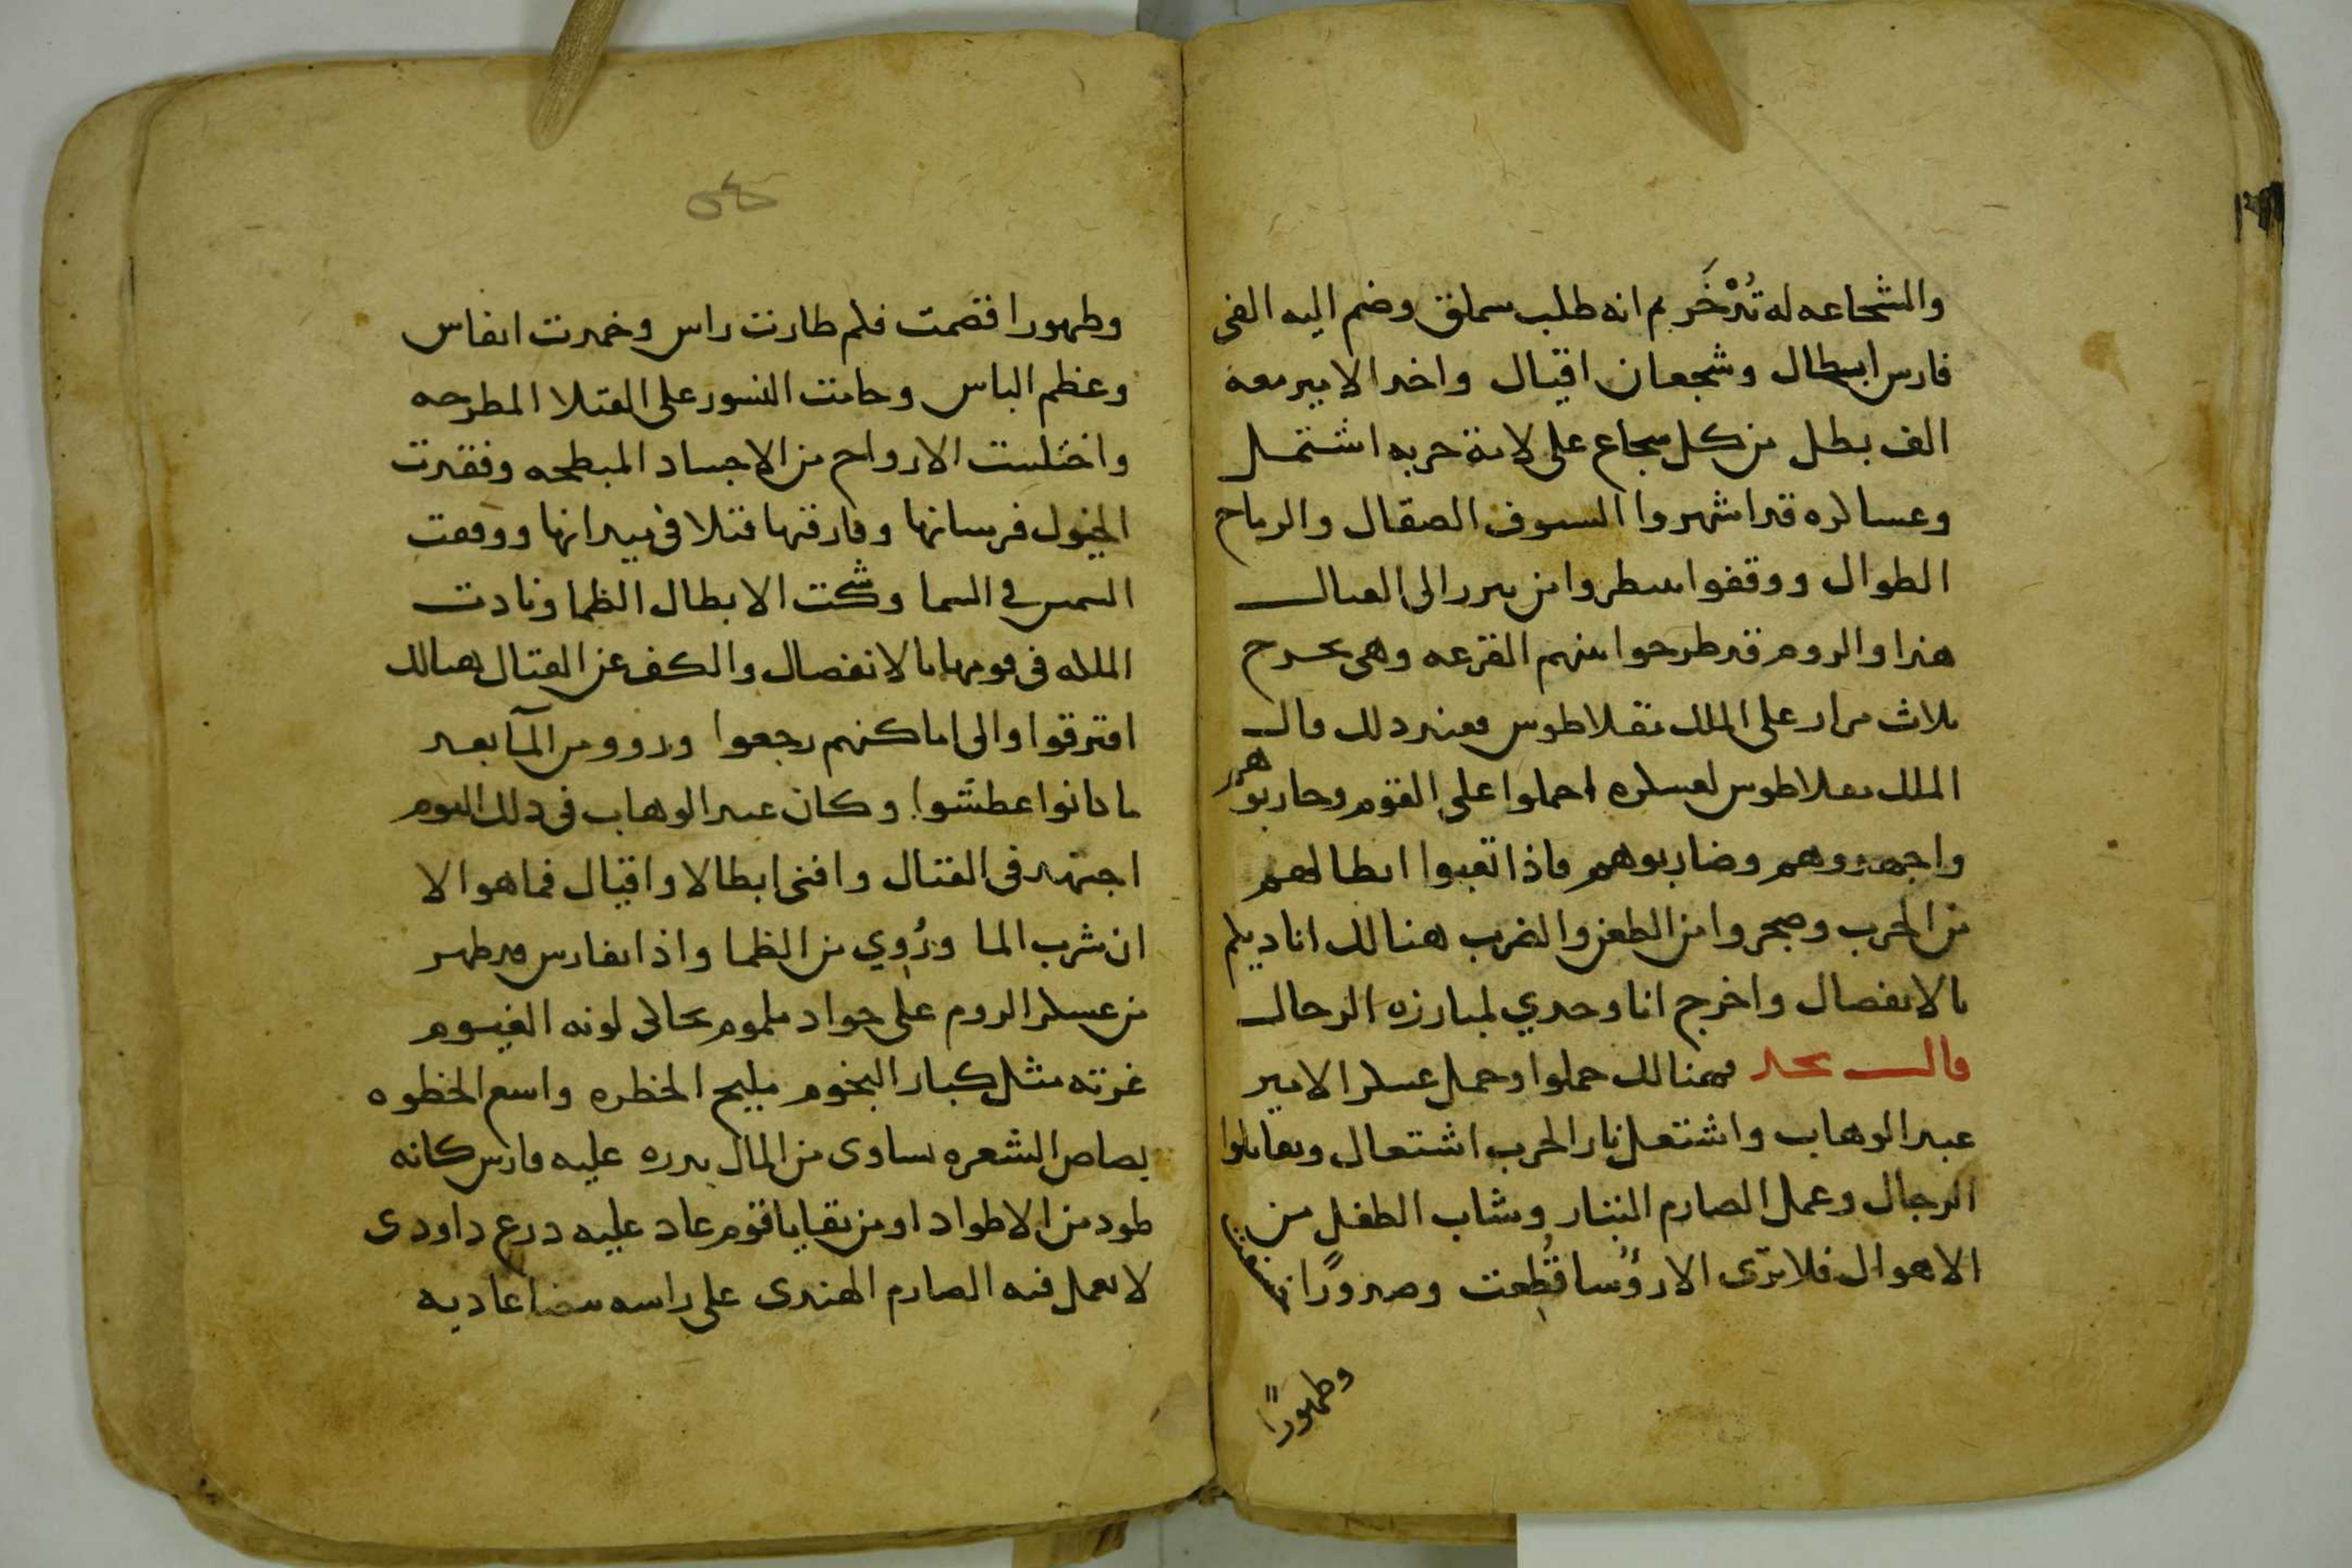 والشجاعه له تُدْخَر ثم انه طلب سملق وضم اليه الفي
فارس ابطال وشجعان اقيال واخد الامير معه
الف بطل من كل شجاع على لامة حربه اشتمل
وعساكره قد اشهروا السيوف الصقال والرماح
الطوال ووقفوا ينظروا من يبرز الى القتال
هذا والروم قد طرحوا بينهم القرعه وهي تخرج
ثلاث مرار على الملك نقلاطوس فعند ذلك قال
الملك نقلاطوس لعسكره احملوا على القوم وحاربوهم
واجهدوهم وضاربوهم فاذا تعبوا ابطالهم
من الحرب وضجروا من الطعن والضرب هنالك اناديكم
بالانفصال واخرج انا وحدي لمبارزه الرجال
قال نجد فهنالك حملوا وحمل عسكر الامير
عبد الوهاب واشتعل نار الحرب اشتعال وتقاتلوا
الرجال وعمل الصارم البتار وشاب الطفل من
الاهوال فلا ترى الا رؤُسا قُطِعت وصدورًا
وظهورًا
وظهورا قصمت فلم طارت راس وخمدت انفاس
وعظم الباس وحامت النسور على القتلا المطرحه
واختلست الارواح من الاجساد المبطحه وفقدت
الخيول فرسانها وفارقتها قتلا في ميدانها ووقفت
الشمس في السما وشكت الابطال الظما ونادت
الملله في قومها بالانفصال والكف عن القتال هنالك
افترقوا والى اماكنهم رجعوا ورووا من المآ بعد
ما كانوا عطشوا وكان عبد الوهاب في ذلك اليوم
اجتهد في القتال وافنى ابطالا واقيال فما هو الا
ان شرب الما ورُوي من الظما واذا بفارس قد ظهر
من عسكر الروم على جواد ملموم يحاكي لونه الغيوم
غرته مثل كبار النجوم مليح الخطره واسع الخطوه
بصاص الشعره يساوى من المال بدره عليه فارس كانه
طود من الاطواد او من بقايا قوم عاد عليه درع داودى
لا يعمل فيه الصارم الهندى على راسه بيضا عاديه